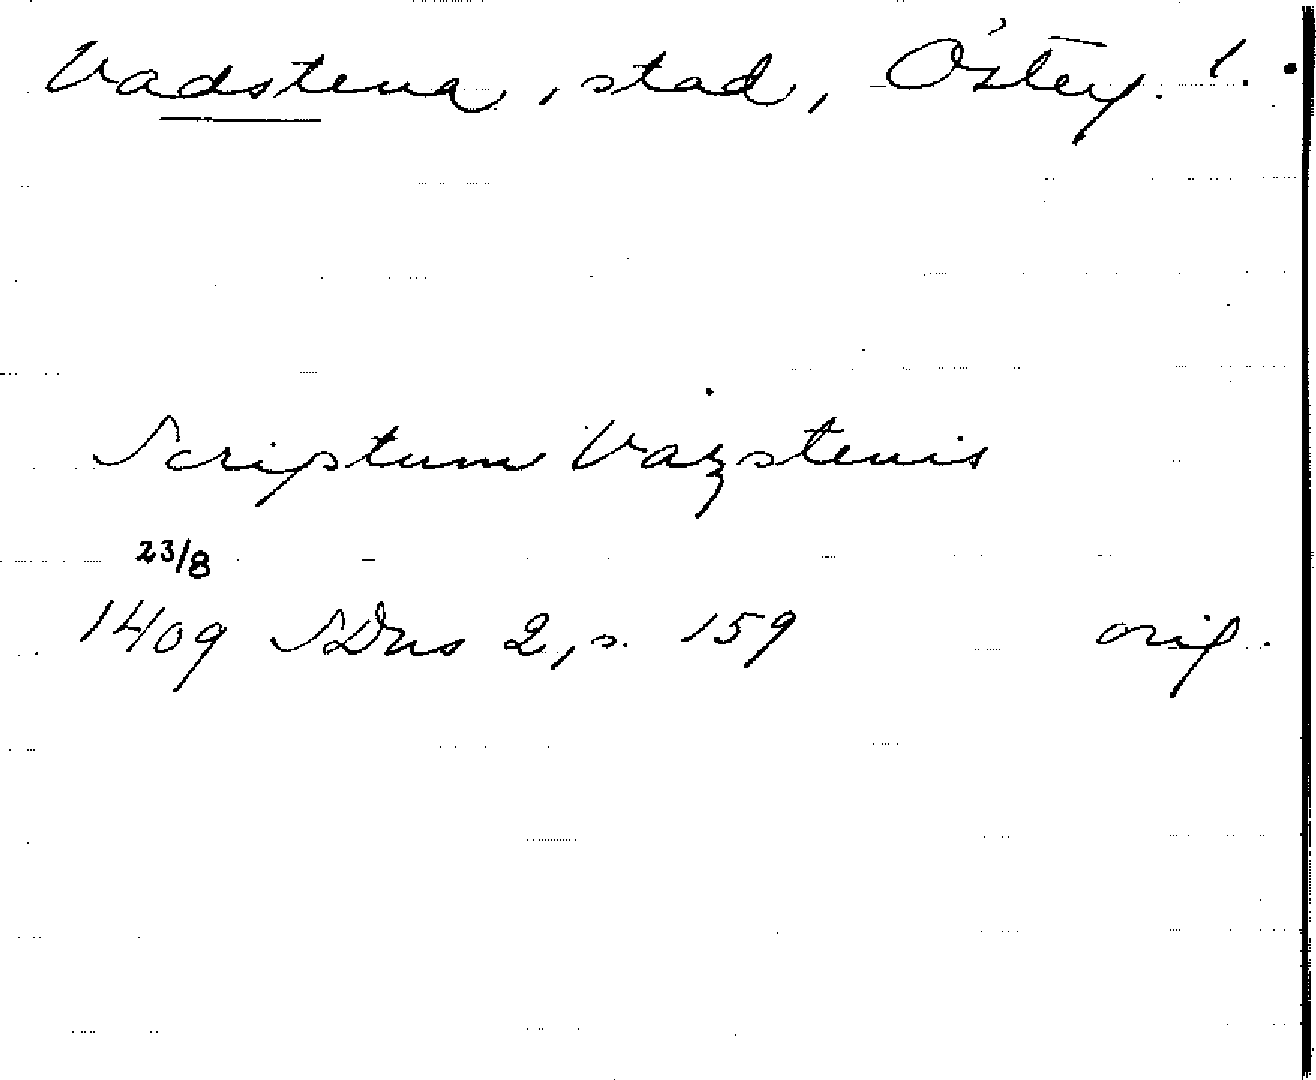 Vadstena, stad, Österg. l.
Scriptum Vazstenis
23/8
1409 SDns 2, s. 159 orig.